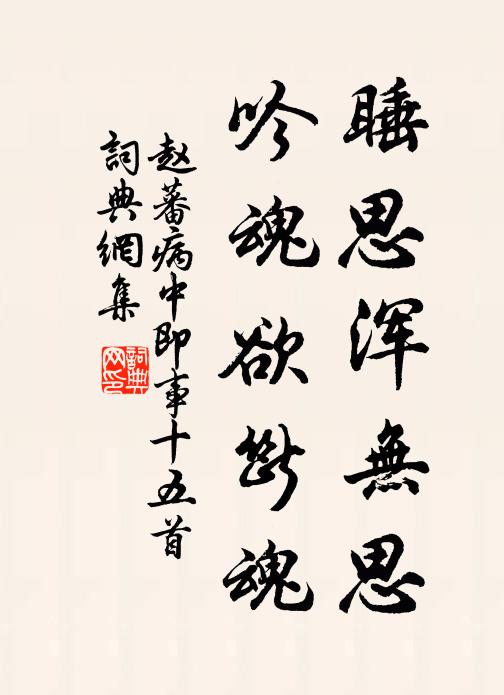 睡思浑無思
吟魂欲断魂
赵蕃病中即事十五首
詞典網集
詞典
网印